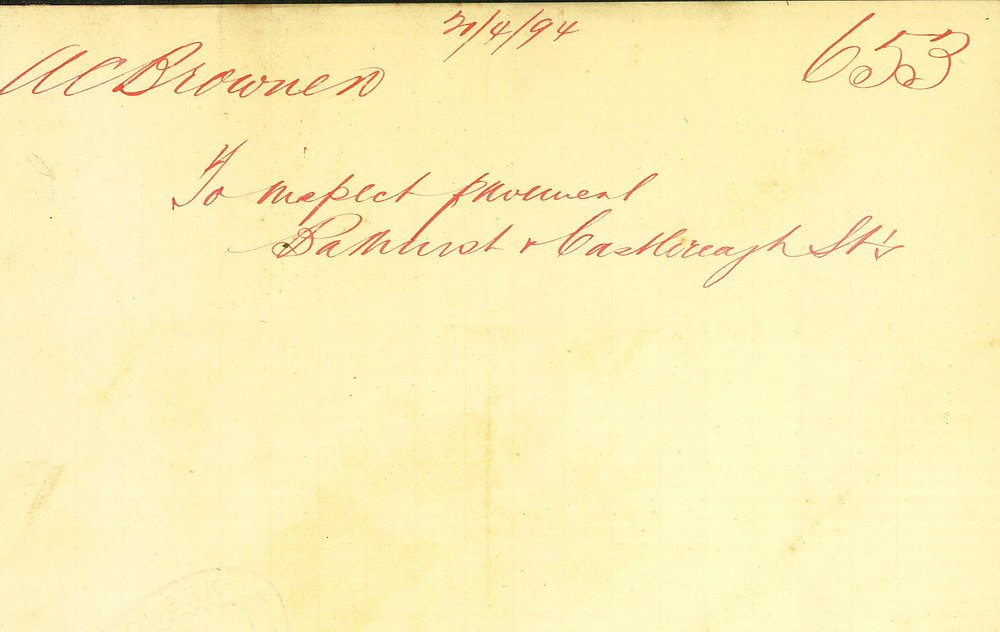 21/4/94
653
A C Brownen
To inspect pavement
Bathurst & Castlereagh St's
CLERK